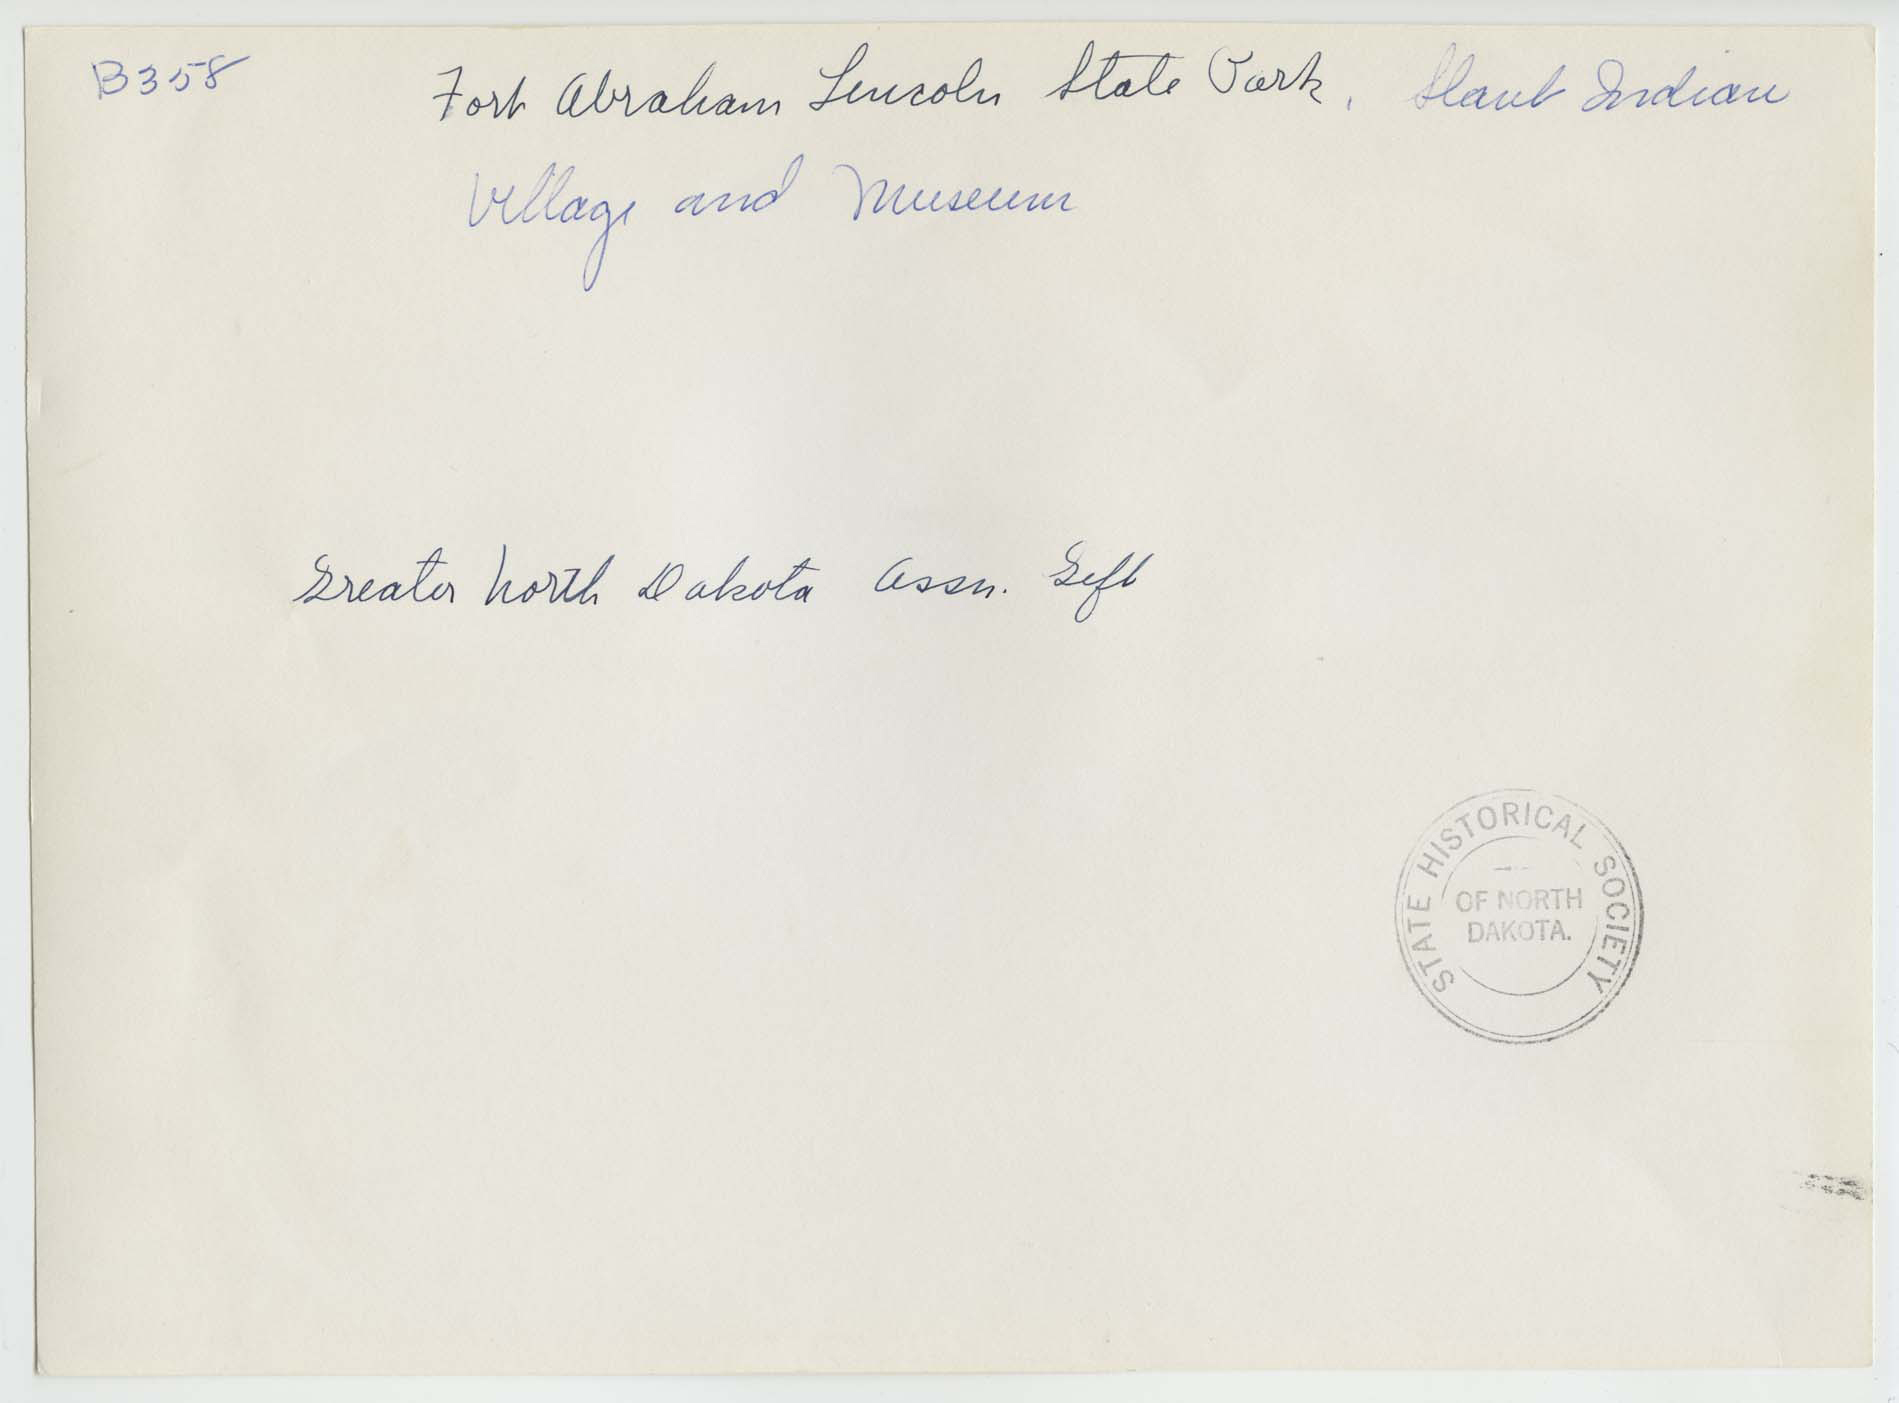 B358
Fort Abraham Lincoln State Park, Slant Indian
Village and Museum
Greater North Dakota Assn. Gift
STATE HISTORICAL SOCIETY
OF NORTH
DAKOTA.